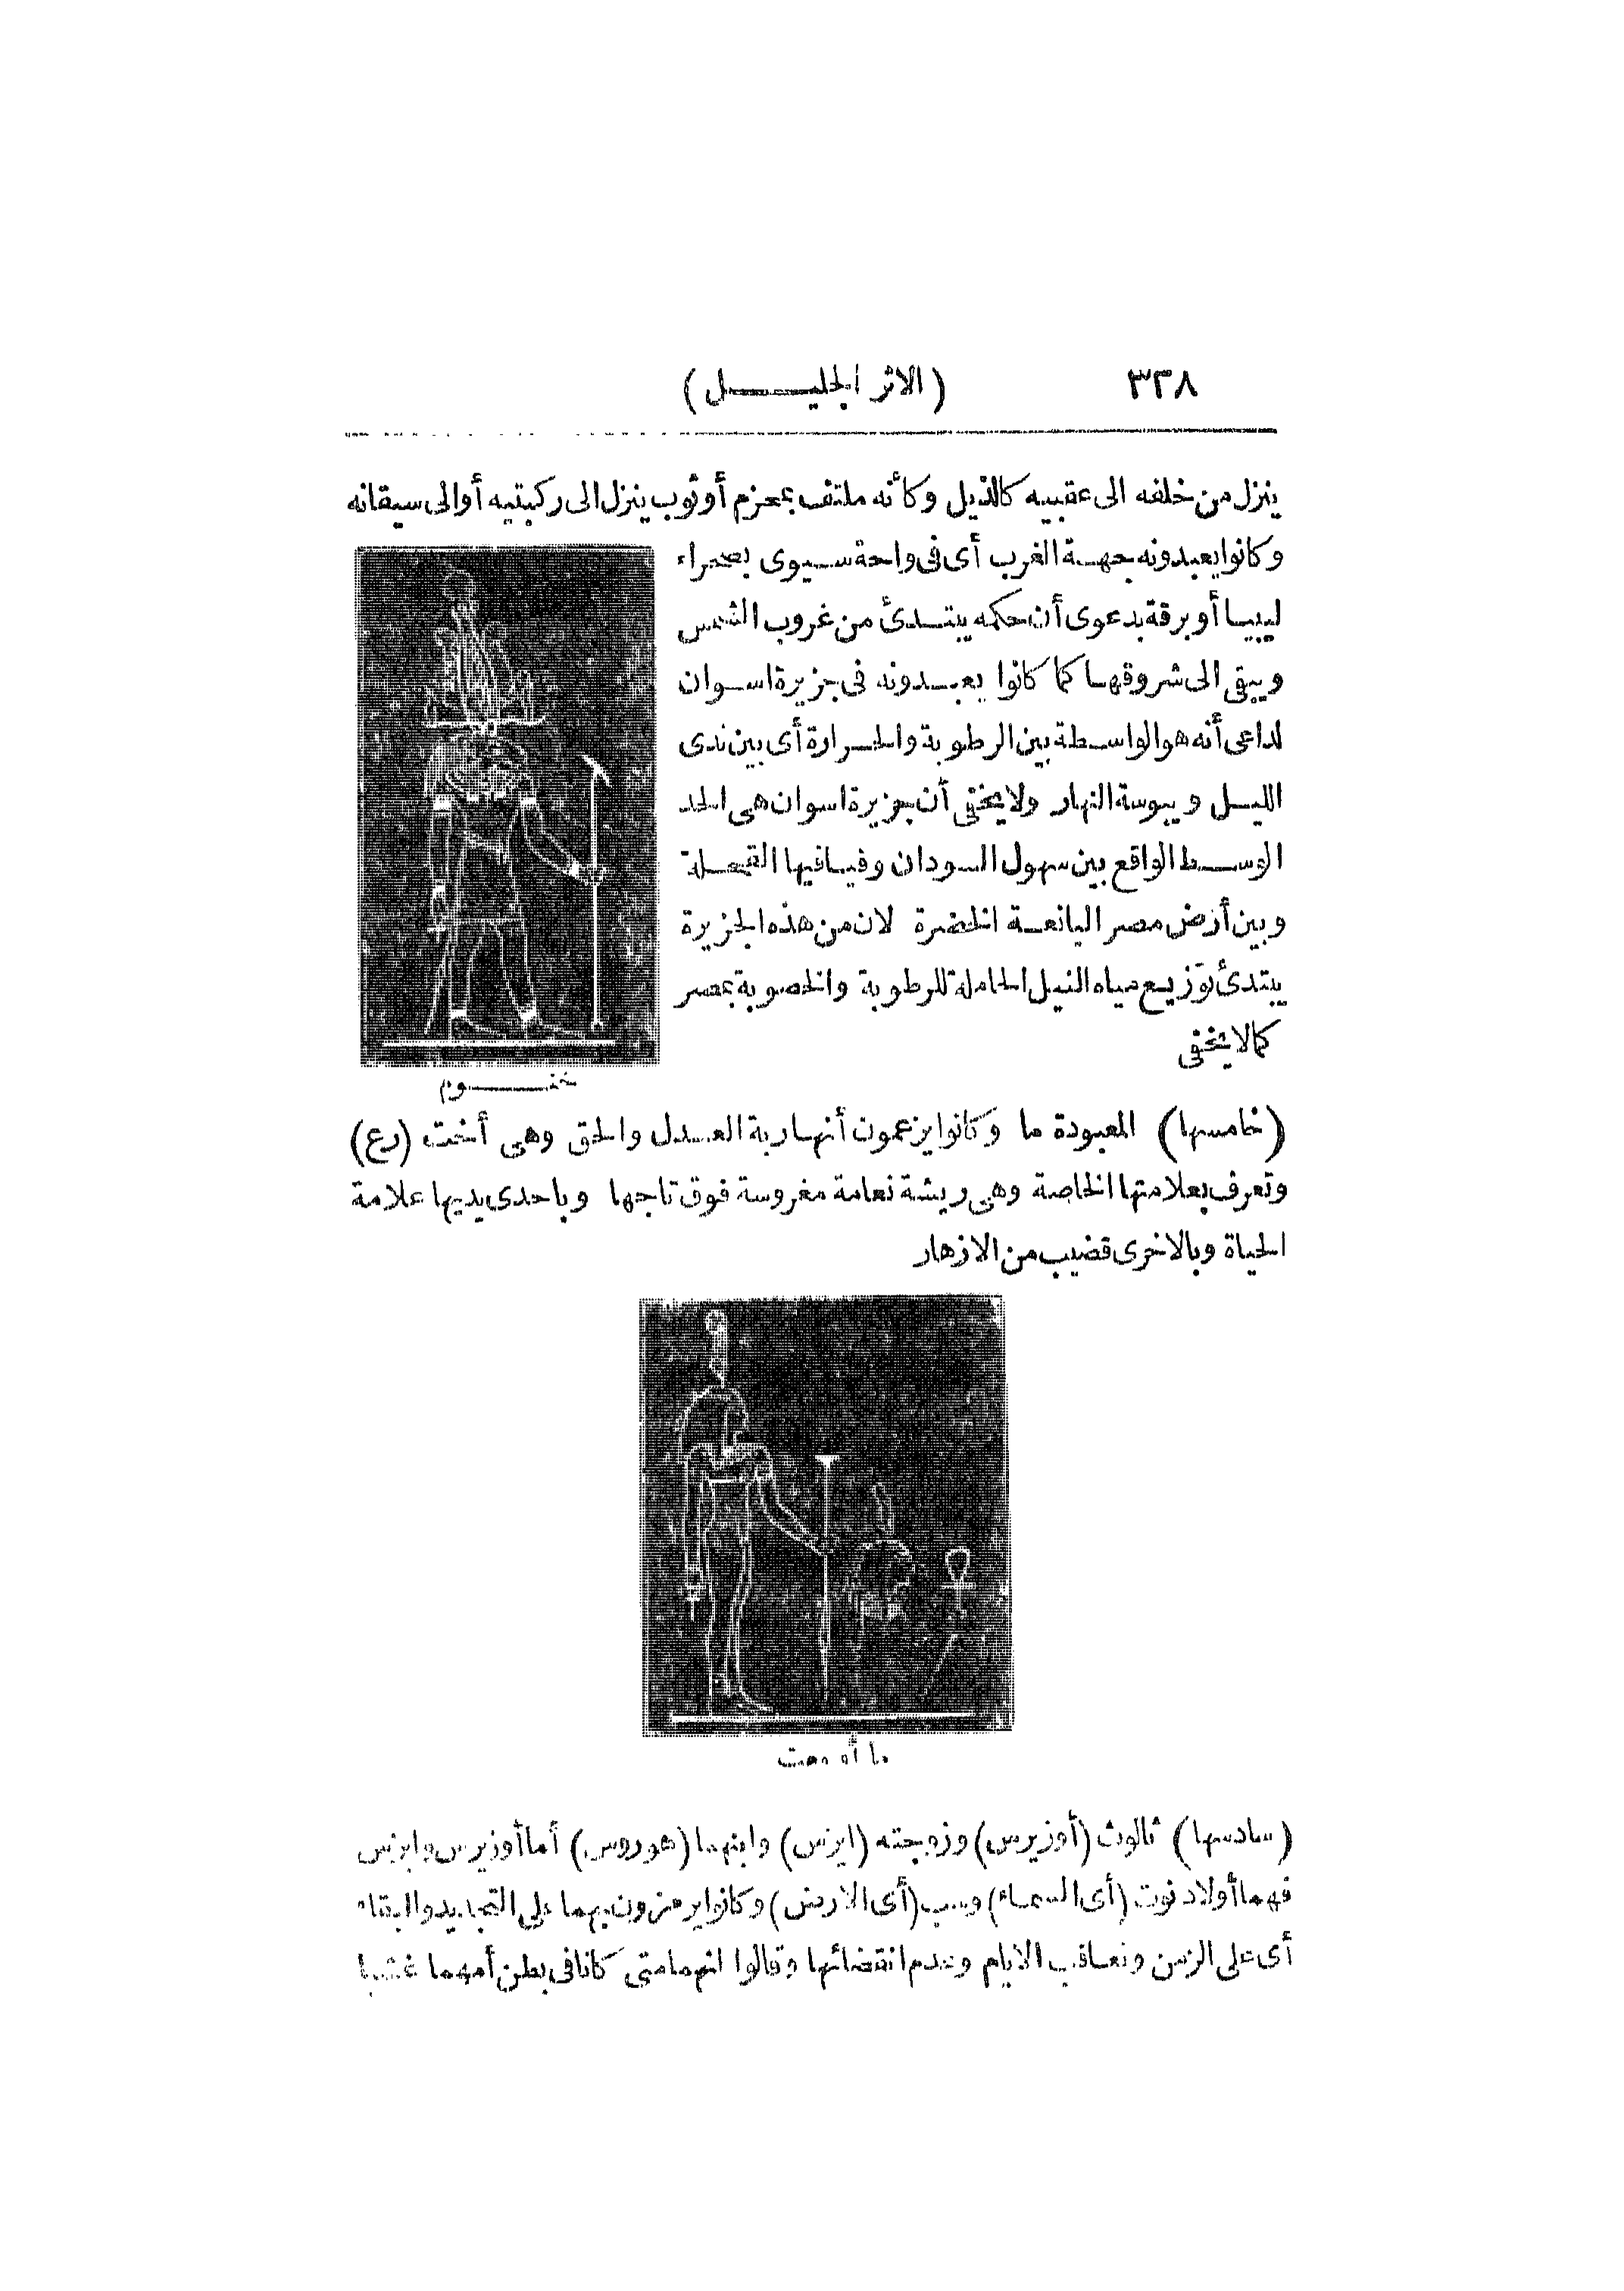 ٣٣٨ (الاثر الجليـــــل)
ينزل من خلفه الى عقبيه كالذيل وكأنه ملتف بمحزم أو ثوب ينزل الى ركبتيه أو الى سيقانه
وكانوا يعبدونه بجهـة الغرب أى فى واحة سـيوى بصحراء
ليبيـا أو برقة بدعوى أن حكمه يبتـدئ من غروب الشمس
ويبقى الى شروقهـا كما كانوا يعبـدونه فى جزيرة اسـوان
لداعى أنه هو الواسـطة بين الرطوبة والحـرارة أى بين ندى
الليـل ويبوسة النهار ولا يخفى أن جزيرة اسوان هى الحد
الوسـط الواقع بين سهول السودان وفيـافيها القحـلة
وبين أرض مصر اليانعـة الخضرة لان من هذه الجزيرة
يبتدئ توزيـع مياه النيل الحاملة للرطوبة والخصوبة بمصر
كما لا يخفى
خنـــوم
(خامسها) المعبودة ما وكانوا يزعمون أنهـا ربة العـدل والحق وهى أخت (رع)
وتعرف بعلامتها الخاصة وهى ريشة نعامة مغروسة فوق تاجها وباحدى يديها علامة
الحياة وبالاخرى قضيب من الازهار
ما أو معت
(سادسها) ثالوث (أوزيرس) وزوجته (ايزس) وابنهما (هوروس) أما أوزيرس وايزس
فهما أولاد نوت (أى السماء) وسب (أى الارض) وكانوا يرمزون بهما على التجديد والبقاء
أى على الزمن وتعـاقب الايام وعدم انقضائها وقالوا انهما متى كانا فى بطن أمهما